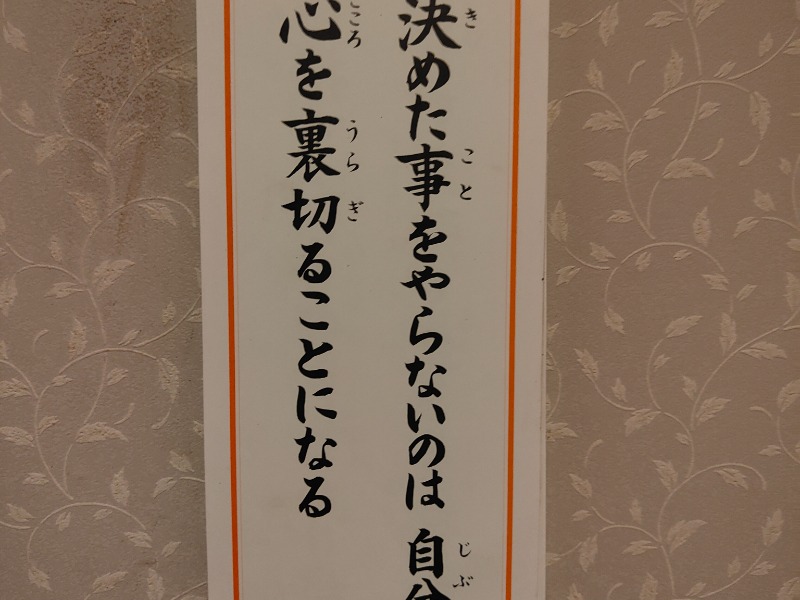 決めた事をやらないのは 自分
心を裏切ることになる